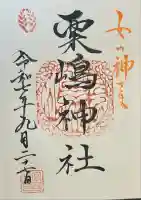 女の神さま
粟嶋神社
令和七年九月二十二日